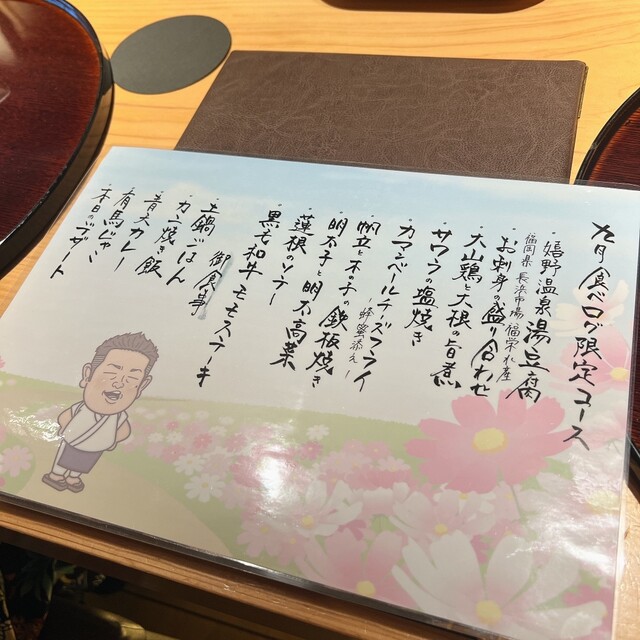 九月食べログ限定コース
・嬉野温泉湯豆腐
福岡県 長浜市場 福栄水産
・お刺身の盛合わせ
・大山鶏と大根の旨煮
・サワラの塩焼き
・カマンベールチーズフライ
－蜂蜜添え－
・帆立とホ子の鉄板焼き
・明太子と明太高菜
・蓮根のソテー
・黒毛和牛モモステーキ
御食事
土鍋ごはん
・カニ焼き飯
・カレー
・有馬じゃこ
・本日のデザート